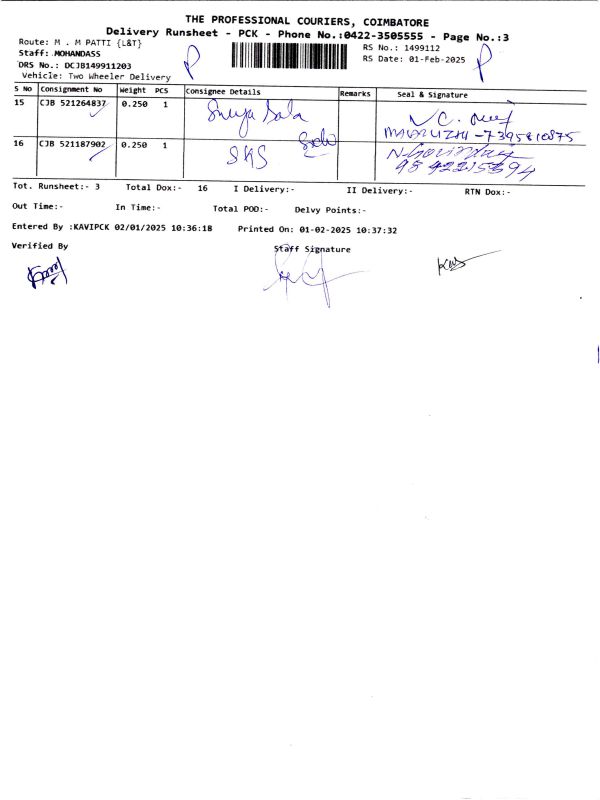 THE PROFESSIONAL COURIERS, COIMBATORE
Delivery Runsheet - PCK - Phone No.:0422-3505555 - Page No.:3
Route: M . M PATTI {L&T}
RS No.: 1499112
Staff: MOHANDASS
RS Date: 01-Feb-2025
DRS No.: DCJB149911203
Vehicle: Two Wheeler Delivery
S No Consignment No Weight PCS Consignee Details Remarks Seal & Signature
15 CJB 521264837 0.250 1
16 CJB 521187902 0.250 1 SKS
Tot. Runsheet:- 3 Total Dox:- 16 I Delivery:- II Delivery:- RTN Dox:-
Out Time:- In Time:- Total POD:- Delvy Points:-
Entered By :KAVIPCK 02/01/2025 10:36:18 Printed On: 01-02-2025 10:37:32
Verified By Staff Signature